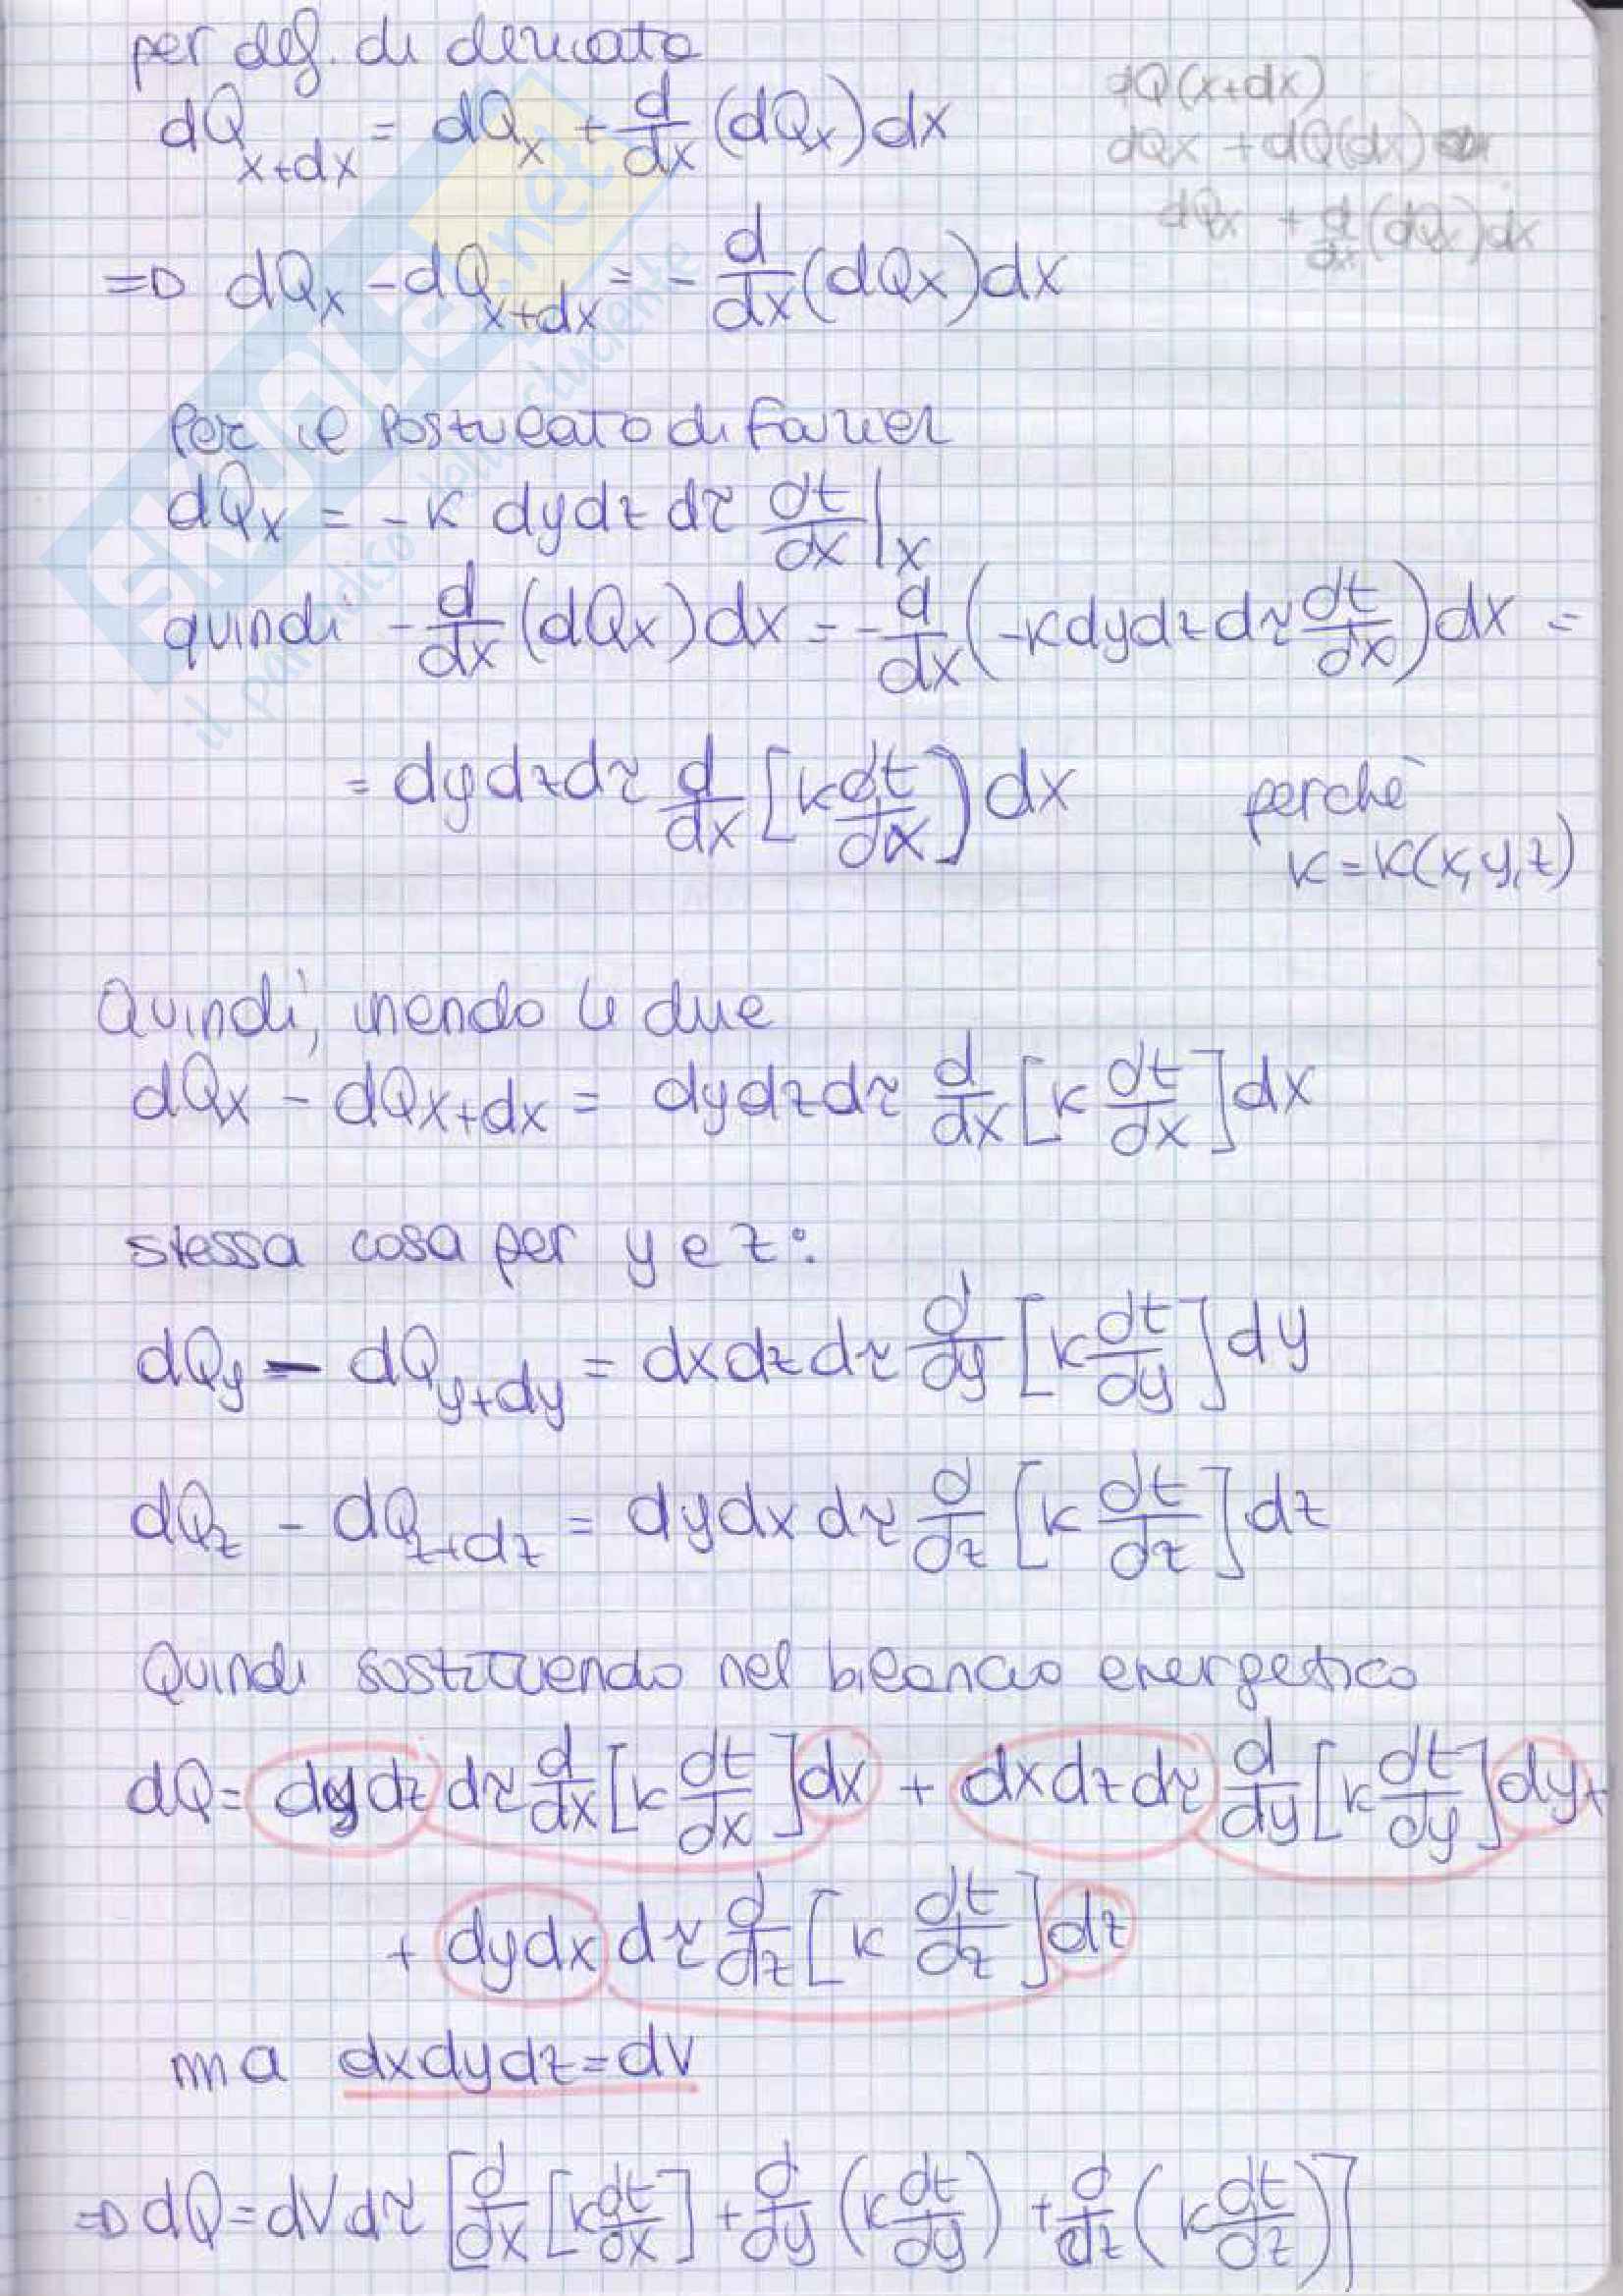 per def. di derivata
dQ_{x+dx} = dQ_x + d/dx (dQ_x) dx
dQ(x+dx)
dQx + dQ(dx)
dQx + d/dx (dQx) dx
=> dQ_x - dQ_{x+dx} = - d/dx (dQx) dx
Per il Postulato di Fourier
dQx = - K dy dz dτ dt/dx |_x
quindi - d/dx (dQx) dx = - d/dx (-K dy dz dτ dt/dx) dx =
= dy dz dτ d/dx [K dt/dx) dx perchè
K = K(x,y,z)
Quindi, unendo le due
dQx - dQx+dx = dy dz dτ d/dx [K dt/dx] dx
stessa cosa per y e z:
dQy - dQ_{y+dy} = dx dz dτ d/dy [K dt/dy] dy
dQz - dQ_{z+dz} = dy dx dτ d/dz [K dt/dz] dz
Quindi sostituendo nel bilancio energetico
dQ = dy dz dτ d/dx [K dt/dx] dx + dx dz dτ d/dy [K dt/dy] dy +
+ dy dx dτ d/dz [K dt/dz] dz
ma dxdydz = dV
=> dQ = dV dτ [d/dx [K dt/dx] + d/dy (K dt/dy) + d/dz (K dt/dz)]
SKUOLA.net
il paradiso dello studente